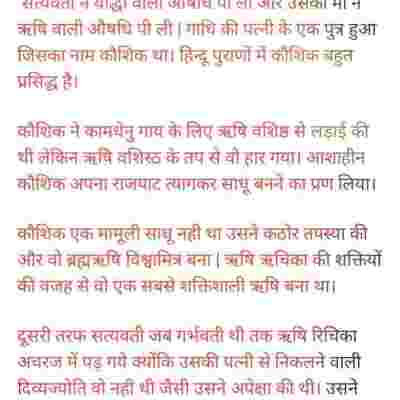 सत्यवती ने योद्धा वाली औषधि पी ली और उसकी माँ ने
ऋषि वाली औषधि पी ली | गाधि की पत्नी के एक पुत्र हुआ
जिसका नाम कौशिक था। हिन्दू पुराणों में कौशिक बहुत
प्रसिद्ध है।
कौशिक ने कामधेनु गाय के लिए ऋषि वशिष्ठ से लड़ाई की
थी लेकिन ऋषि वशिस्ठ के तप से वो हार गया। आशाहीन
कौशिक अपना राजपाट त्यागकर साधू बनने का प्रण लिया।
कौशिक एक मामूली साधू नही था उसने कठोर तपस्या की
और वो ब्रह्मऋषि विश्वामित्र बना | ऋषि ऋचिका की शक्तियों
की वजह से वो एक सबसे शक्तिशाली ऋषि बना था।
दूसरी तरफ सत्यवती जब गर्भवती थी तक ऋषि रिचिका
अचरज में पड़ गये क्योंकि उसकी पत्नी से निकलने वाली
दिव्यज्योति वो नही थी जैसी उसने अपेक्षा की थी। उसने